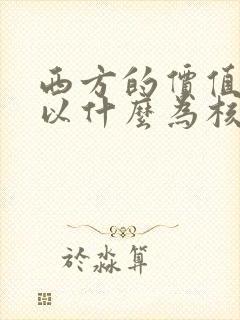 西方的價值
以什麼為核
於淼算